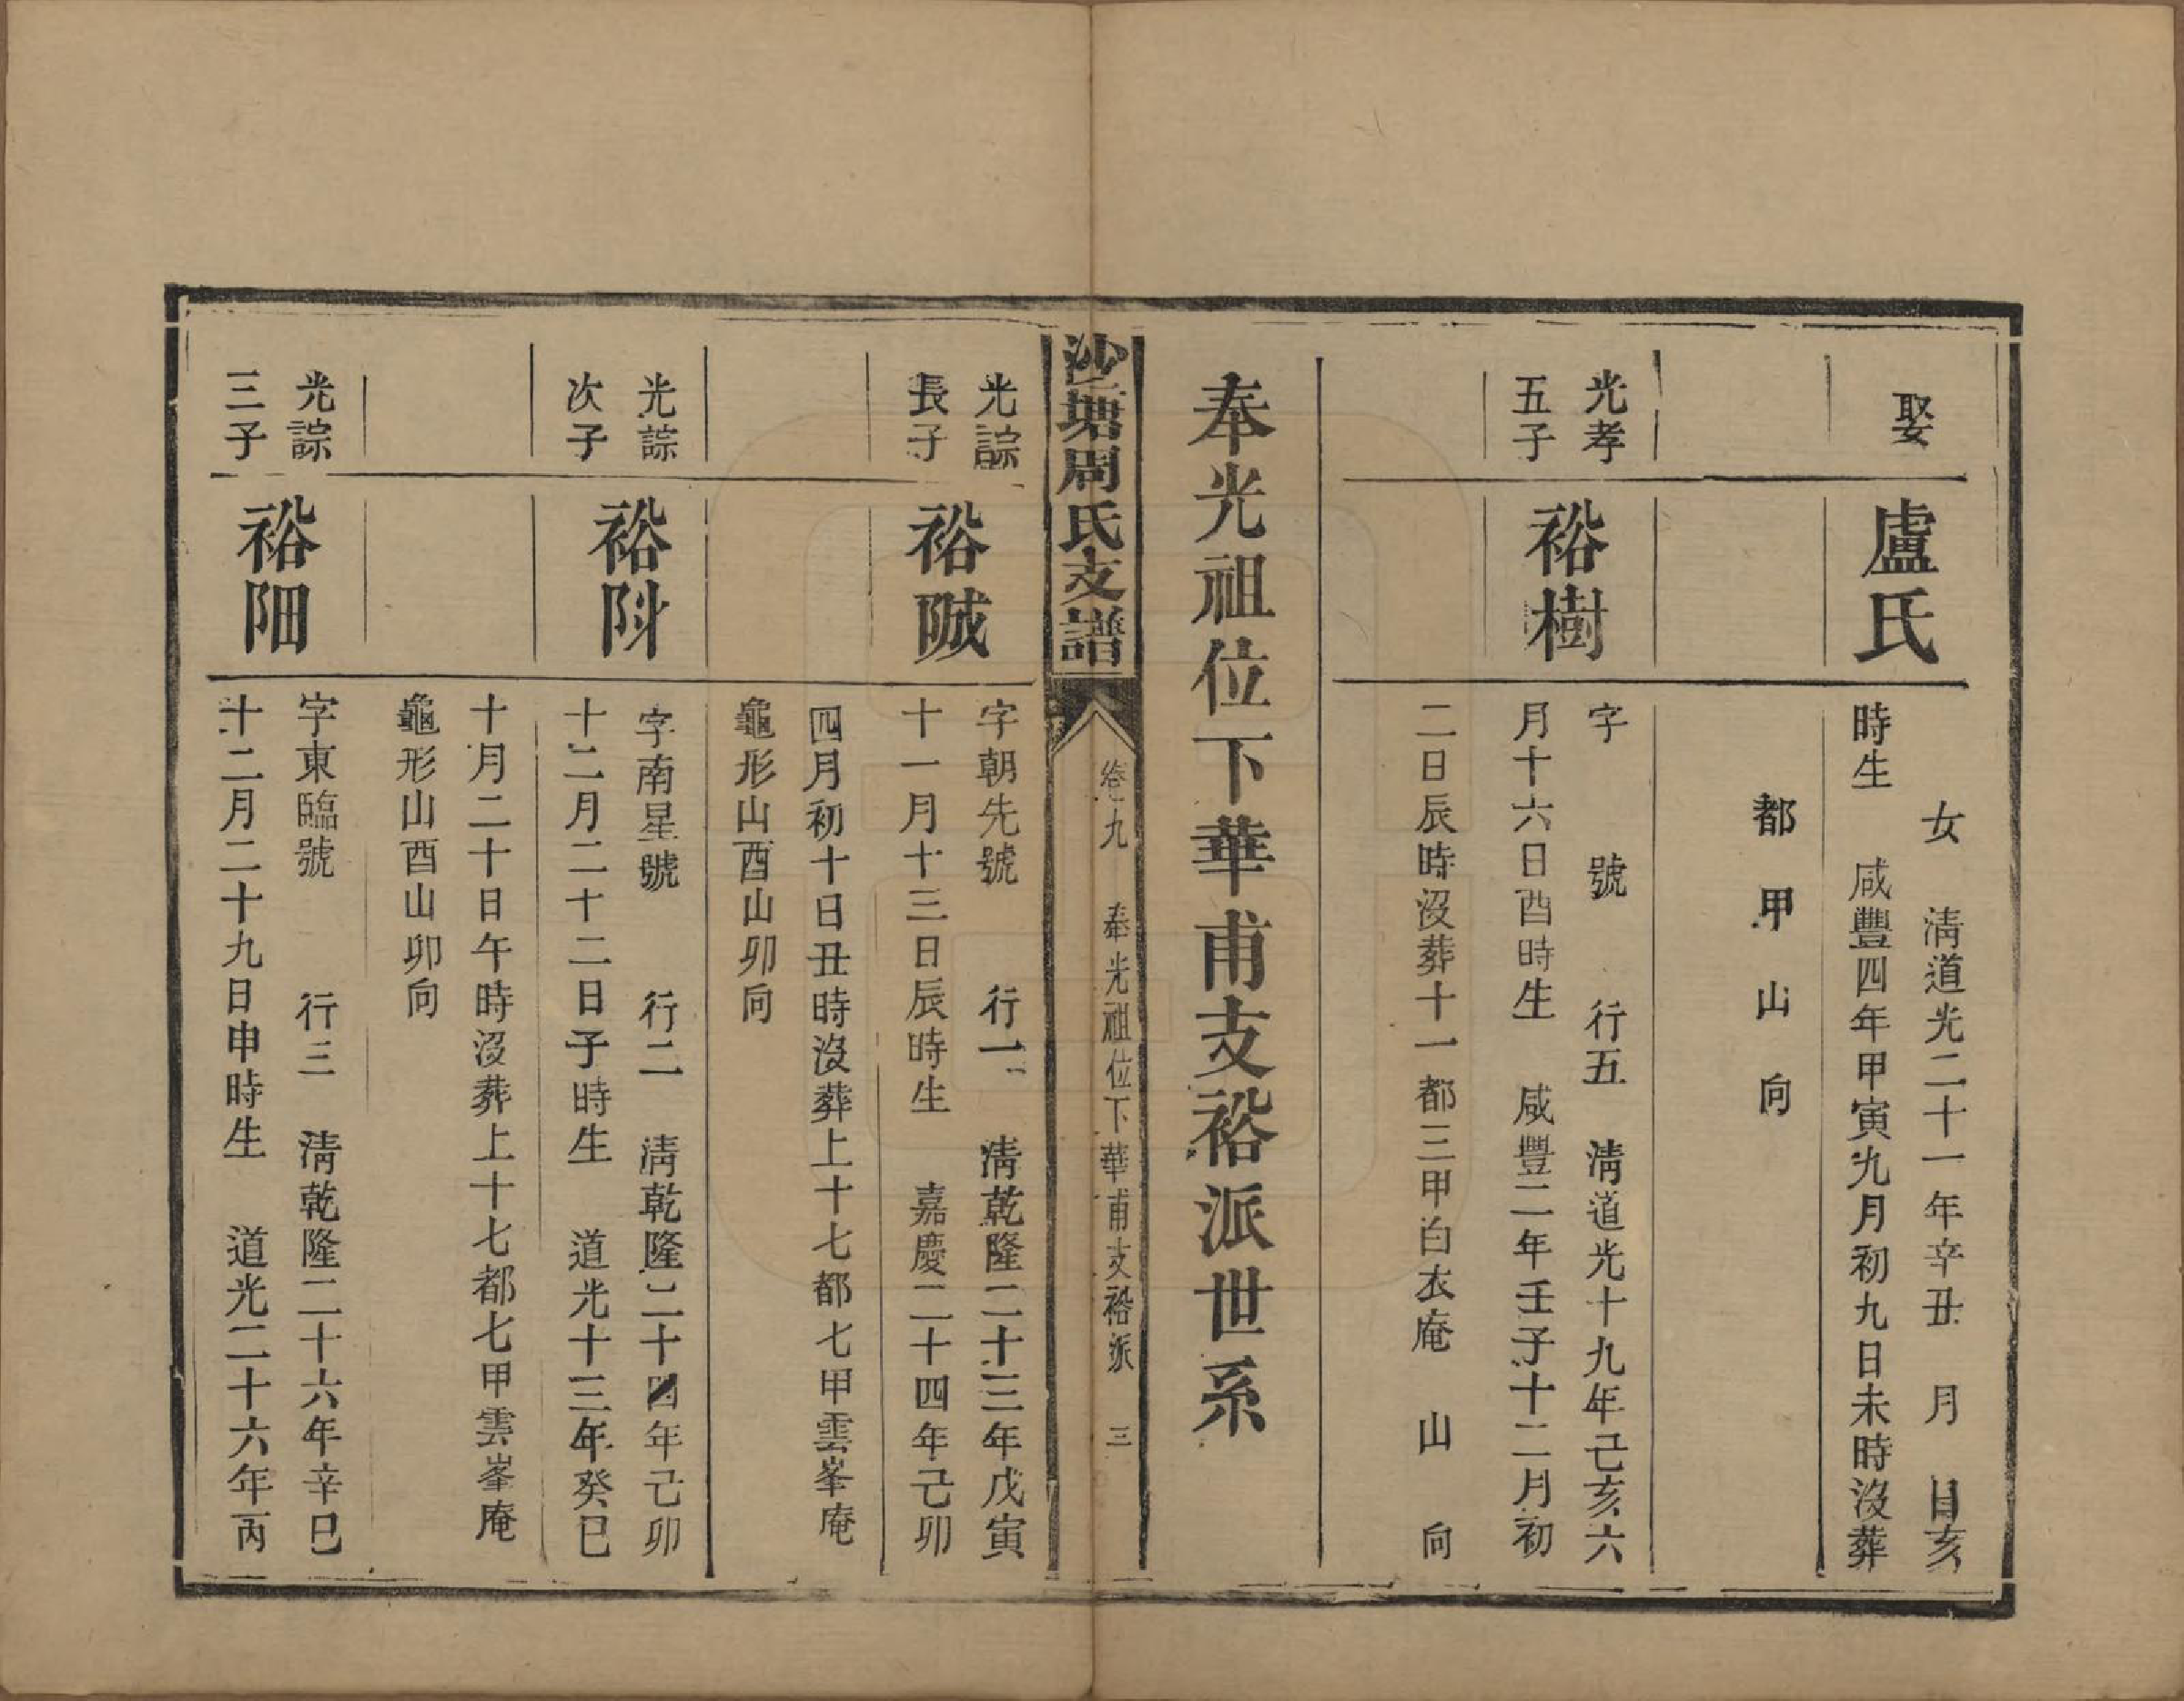 娶
盧氏
女　淸道光二十一年辛丑　月　日亥
時生　咸豐四年甲寅九月初九日未時沒葬
都　甲　山　向
光孝
五子
裕樹
字　　號　　行五　淸道光十九年己亥六
月十六日酉時生　咸豐二年壬子十二月初
二日辰時沒葬十一都三甲白衣庵　山　向
奉光祖位下華甫支裕派世系
沙塘周氏支譜
卷九　奉光祖位下華甫支裕派　三
光誴
長子
裕䧋
字朝先號　　行一　淸乾隆二十三年戊寅
十一月十三日辰時生　嘉慶二十四年己卯
四月初十日丑時沒葬上十七都七甲雲峯庵
龜形山酉山卯向
光誴
次子
裕㪷
字南星號　　行二　淸乾隆二十四年己卯
十二月二十二日子時生　道光十三年癸巳
十月二十日午時沒葬上十七都七甲雲峯庵
龜形山酉山卯向
光誴
三子
裕
字東臨號　　行三　淸乾隆二十六年辛巳
十二月二十九日申時生　道光二十六年丙